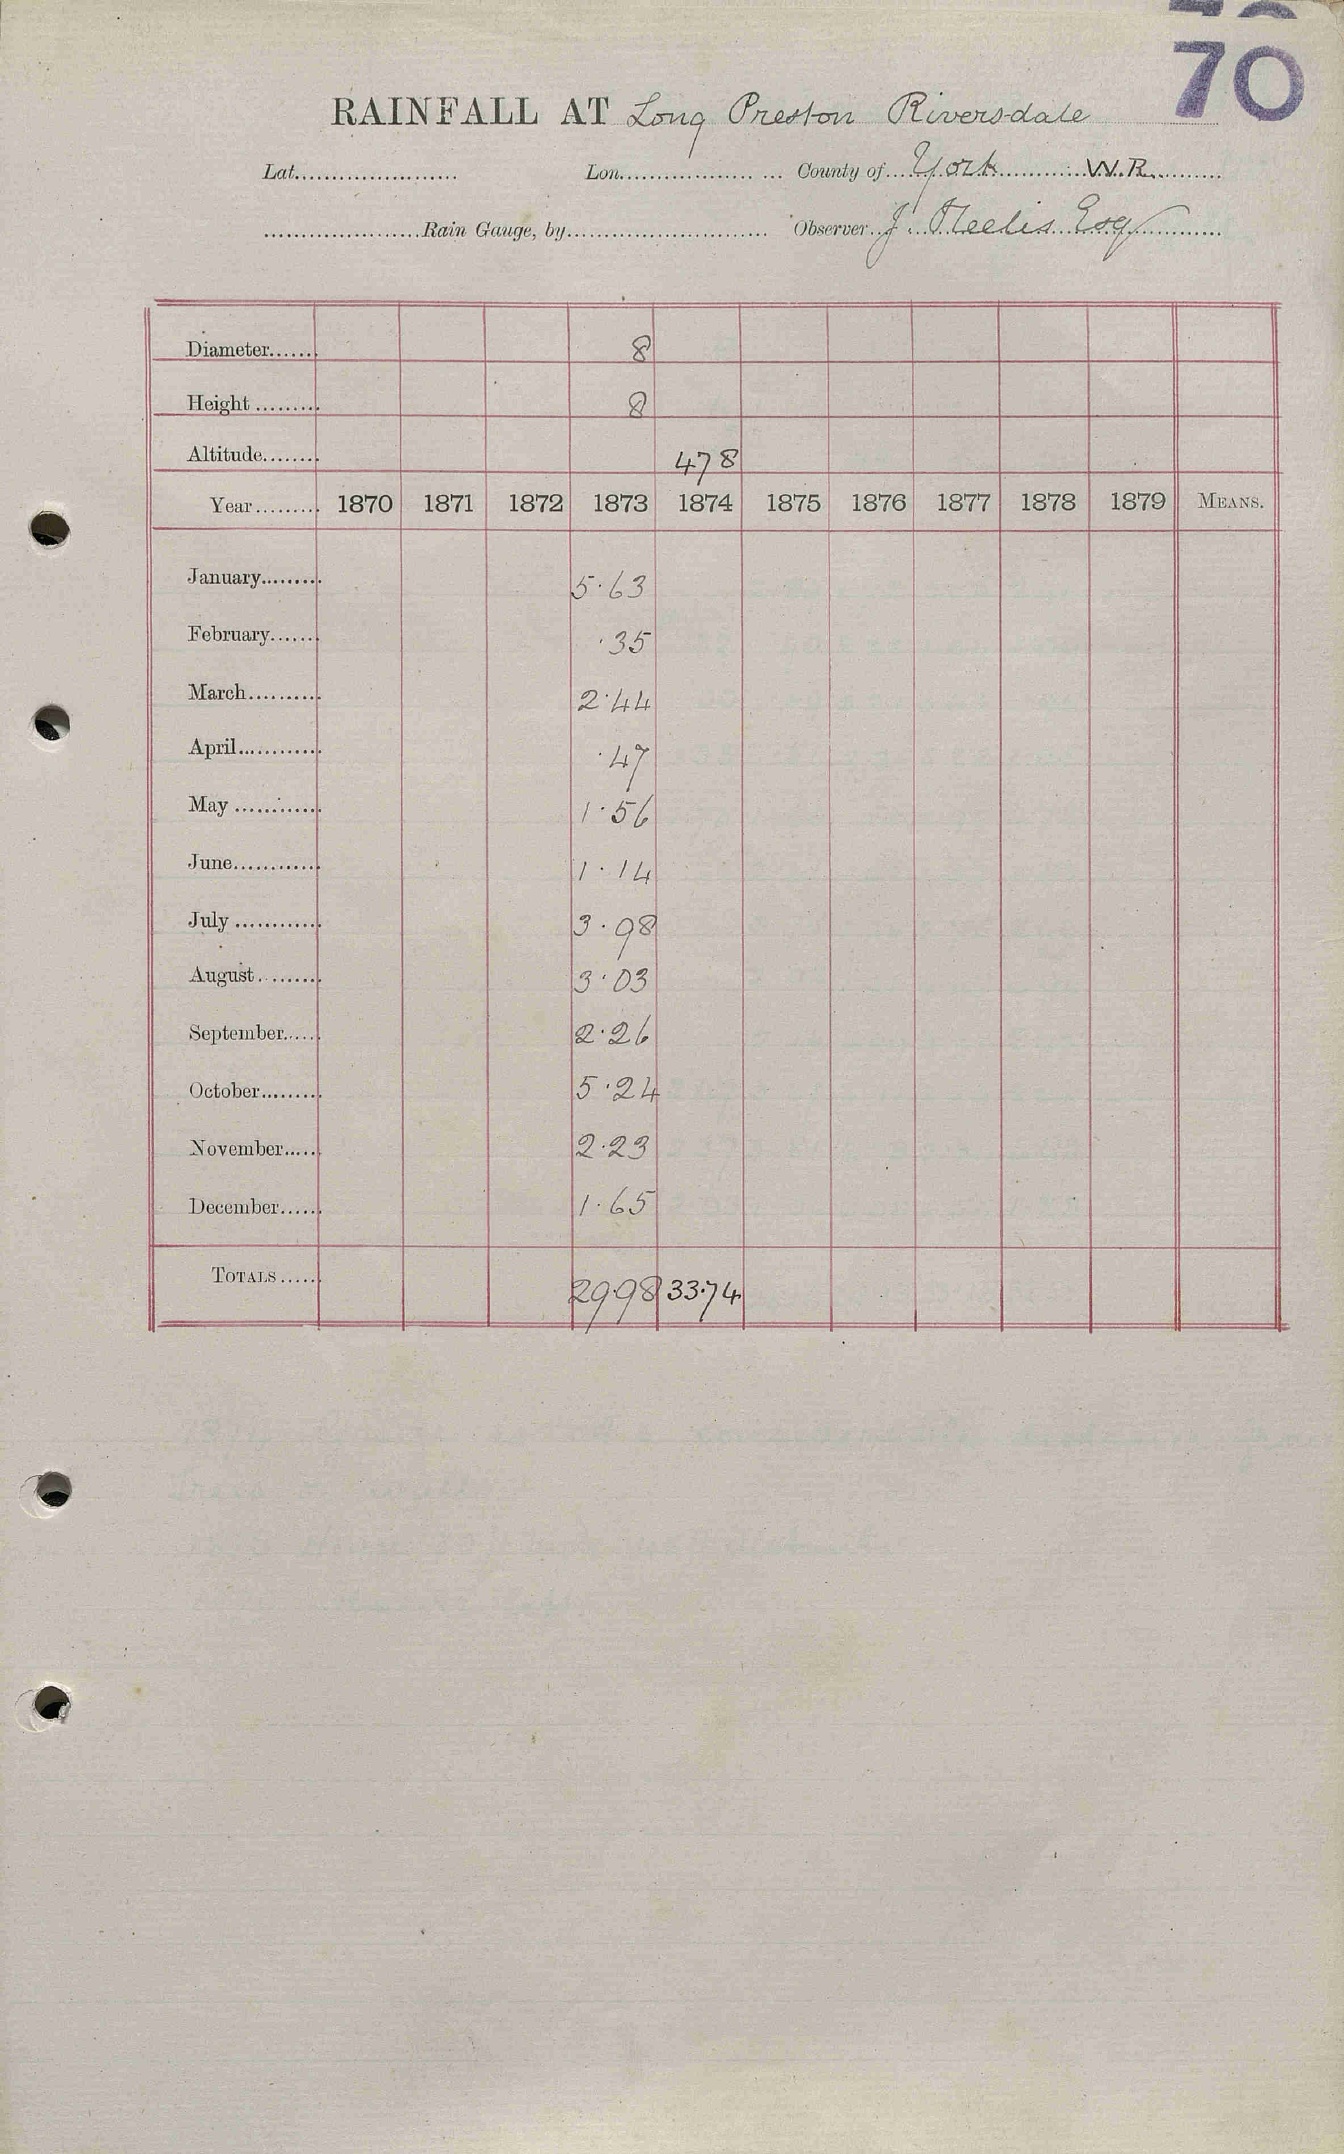 70
RAINFALL AT Long Preston Riversdale
Lat. Lon. County of York W.R.
Rain Gauge, by Observer J. Esq
Diameter 8
Height 8
Altitude 478
Year 1870 1871 1872 1873 1874 1875 1876 1877 1878 1879 MEANS.
January 5.63
February .35
March 2.44
April .47
May 1.56
June 1.14
July 3.98
August 3.03
September 2.26
October 5.24
November 2.23
December 1.65
TOTALS 29.98 33.74